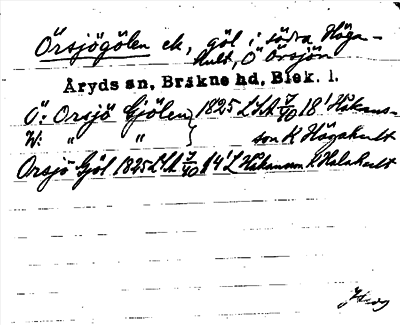 Örsjögölen ek, göl i södra Höga-
kult, Ö Örsjön
Åryds sn, Bräkne hd, Blek. l.
Ö: Orsjö Gjölen } 1825 LSA 7/40 18' Håkans-
W: " " } son K Högakult
Orsjö Gjöl 1825 LSA 7/40 14' L Håkansson K Halakult